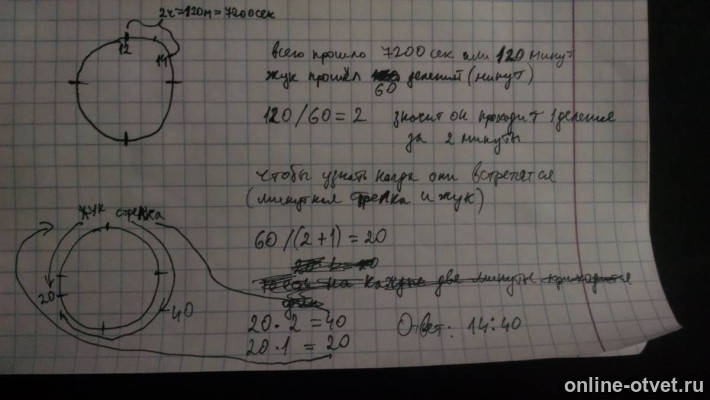 2ч=120м=7200сек
12
14
всего прошло 7200 сек или 120 минут
жук прошёл делений (минут)
60
120/60=2 значит он проходит 1 деление
за 2 минуты
чтобы узнать когда они встретятся
(минутная стрелка и жук)
жук стрелка
60/(2+1)=20
20
40
20·2=40
20·1=20
Ответ: 14:40
online-otvet.ru